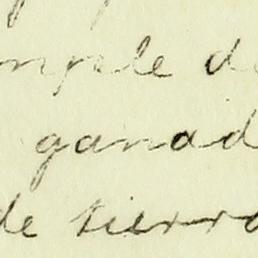 mple de
ganad
de tierra